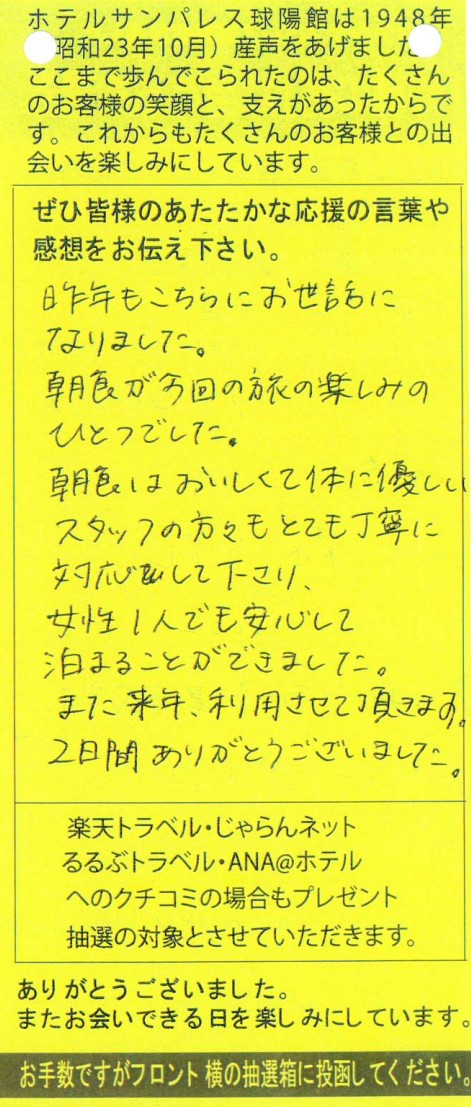 ホテルサンパレス球陽館は1948年
昭和23年10月）産声をあげました
ここまで歩んでこられたのは、たくさん
のお客様の笑顔と、支えがあったからで
す。これからもたくさんのお客様との出
会いを楽しみにしています。
ぜひ皆様のあたたかな応援の言葉や
感想をお伝え下さい。
昨年もこちらにお世話に
なりました。
朝食が今回の旅の楽しみの
ひとつでした。
朝食はおいしくて体に優しい
スタッフの方々もとても丁寧に
対応して下さり、
女性1人でも安心して
泊まることができました。
また来年、利用させて頂きます。
2日間ありがとうございました。
楽天トラベル・じゃらんネット
るるぶトラベル・ANA@ホテル
へのクチコミの場合もプレゼント
抽選の対象とさせていただきます。
ありがとうございました。
またお会いできる日を楽しみにしています。
お手数ですがフロント横の抽選箱に投函してください。